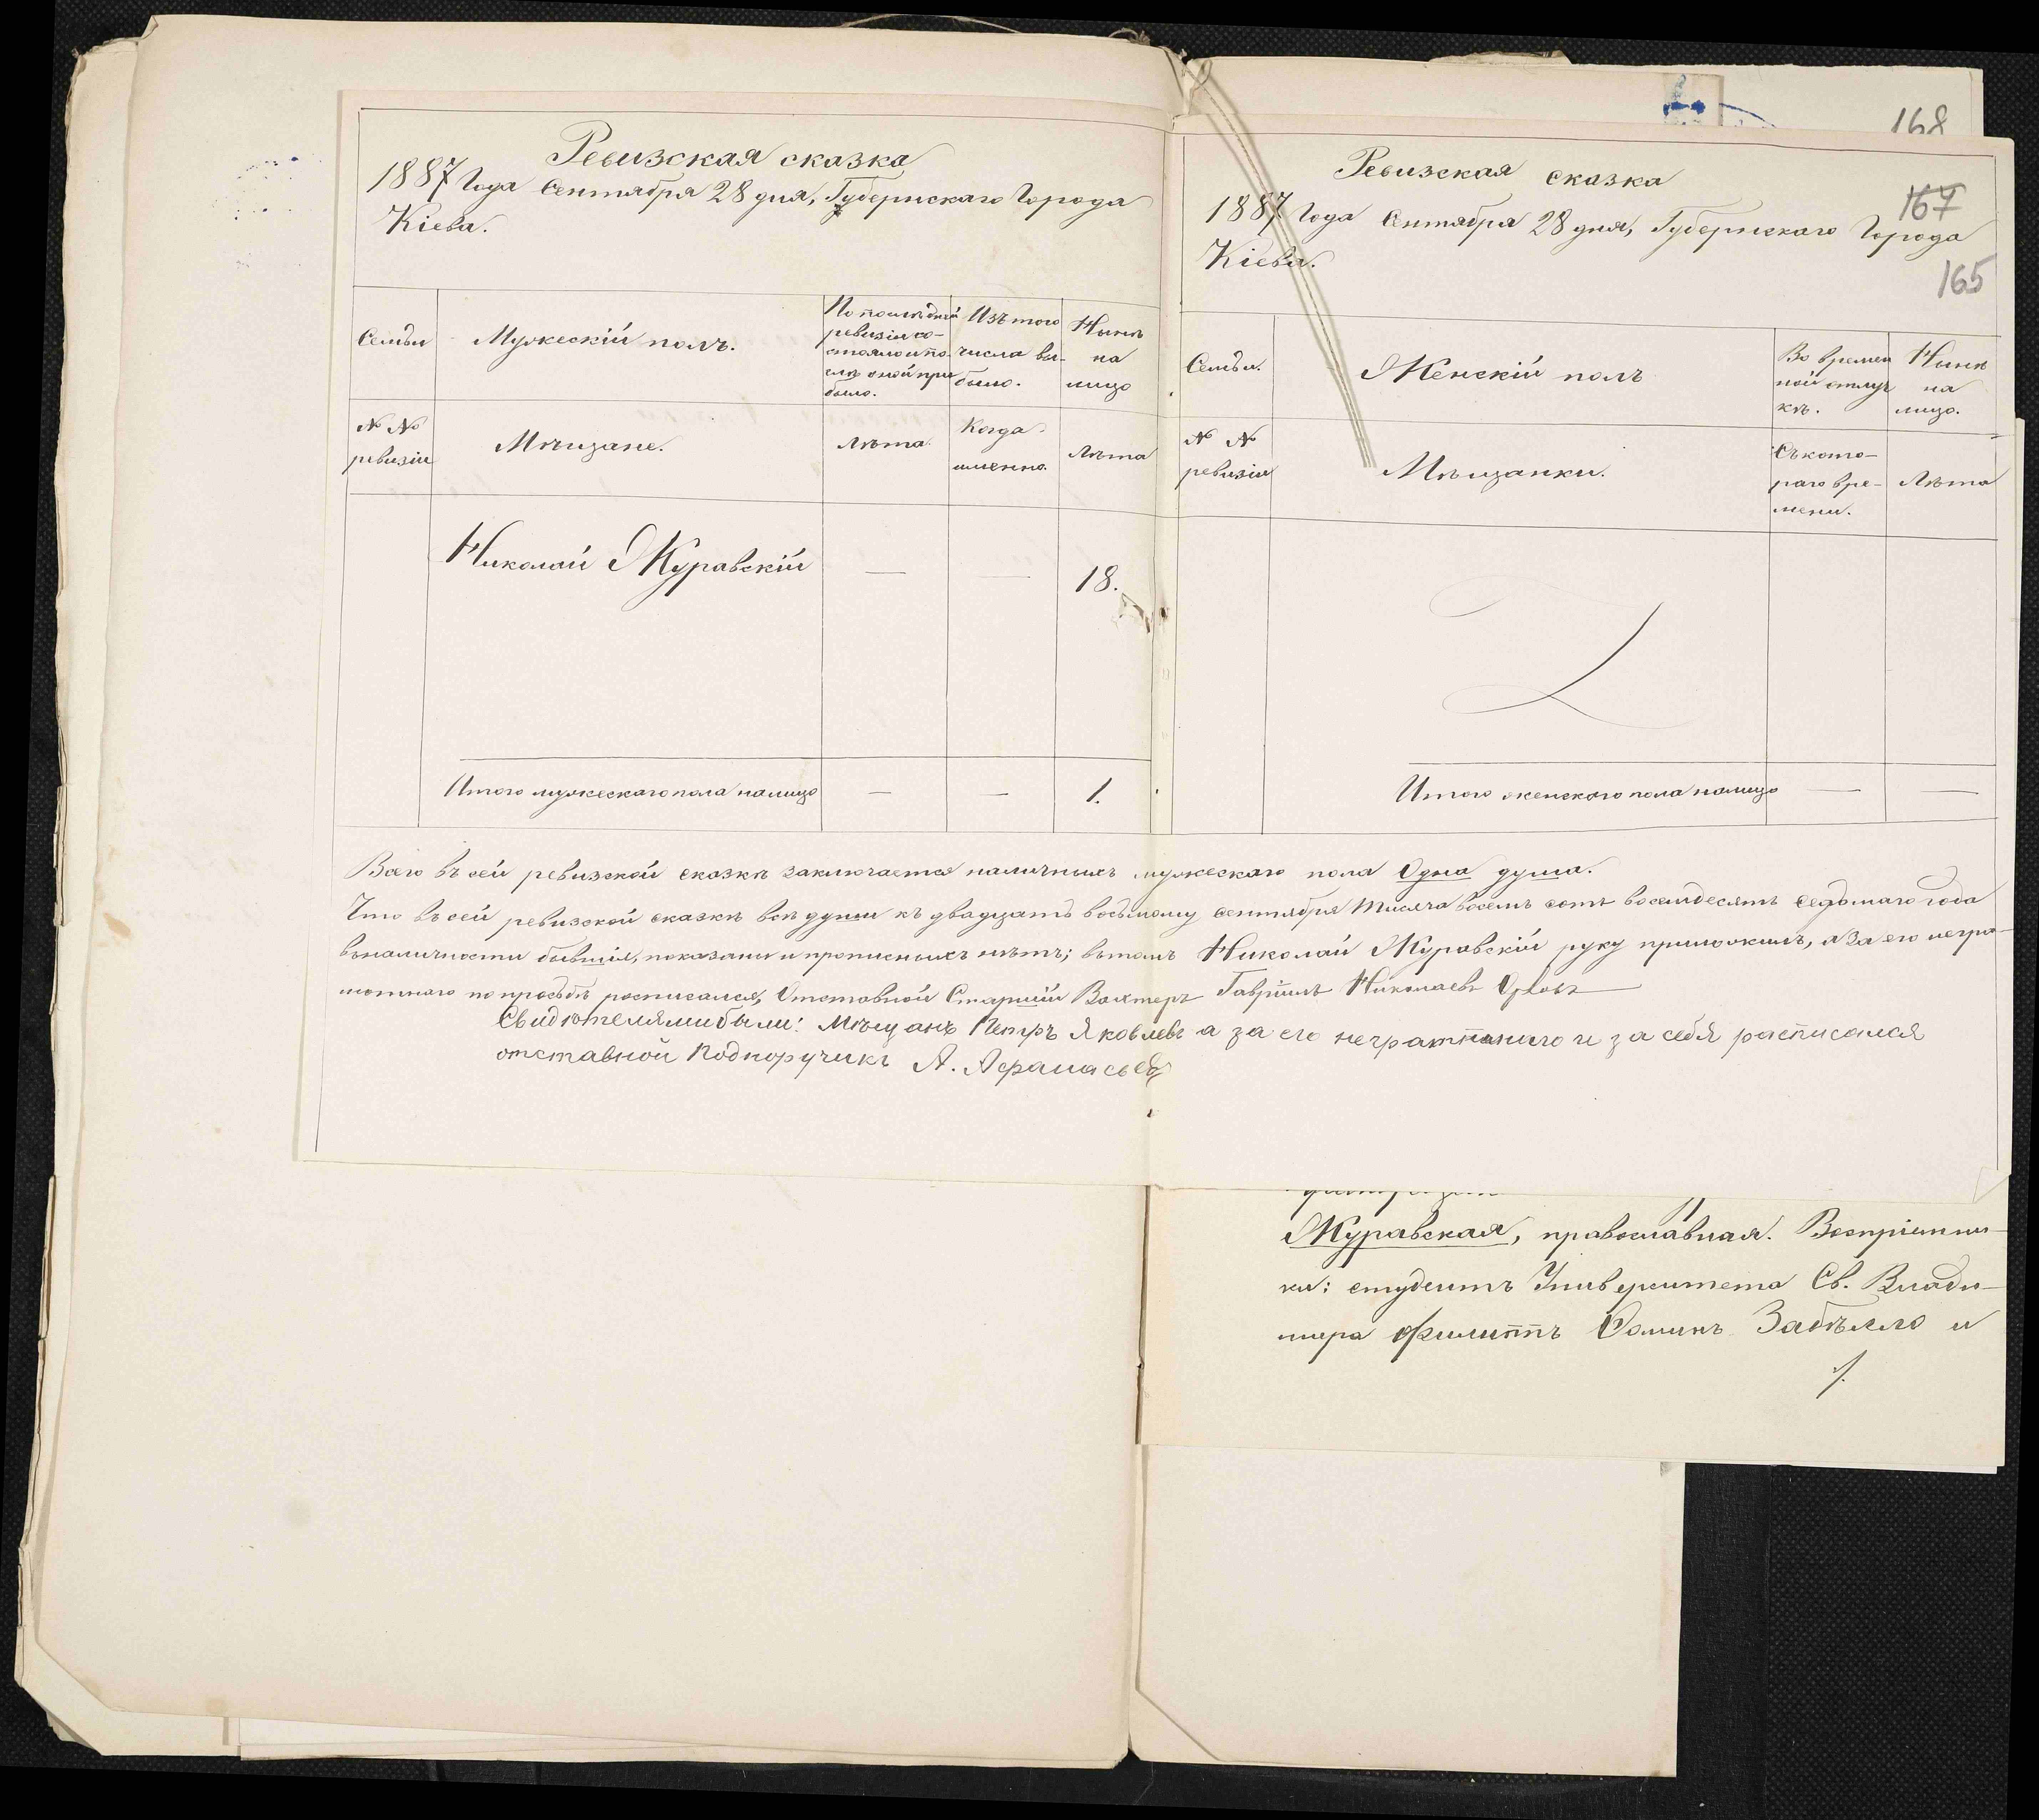 Ревизская сказка
1887 Года Сентября 28 дня, Губернскаго Города
Кіева.
Семьи
Мужескій полъ.
По послѣдней
ревизіи со-
стояло и по-
слѣ оной при
было.
Изъ того
числа вы-
было.
Нынѣ
на
лицо
№ №
ревизіи
Мѣщане.
Лѣта
Когда
именно.
Лѣта
Николай Журавскій — — 18.
Итого мужескаго пола налицо — — 1.
168
Ревизская сказка
167
1887 Года Сентября 28 дня, Губернскаго Города
Кіева.
165
Семьи.
Женскій полъ
Во времен
ной отлуч
кѣ.
Нынѣ
на
лицо.
№ №
ревизіи
Мѣщанки.
Съ кото-
раго вре-
мени.
Лѣта
Итого женскаго пола налицо — —
Всего въ сей ревизской сказкѣ заключается наличныхъ мужескаго пола Одна душа.
Что въ сей ревизской сказкѣ всѣ души къ двадцать восьмому сентября Тысяча восемь сотъ восемьдесятъ седьмаго года
въ наличности бывшія, показаны и прописныхъ нѣтъ; въ томъ Николай Журавскій руку приложилъ, а За его негра-
мотнаго по просьбѣ росписался, Отставной Старшій Вахтеръ Гавріилъ Николаевъ Орловъ
Свидѣтелями были: Мѣщанъ Петръ Яковлевъ а за его неграмотнаго и за себя расписался
отставной Подпоручикъ А. Афанасьевъ
Журавская, православная. Воспріемни-
ки: студентъ Университета Св. Влади-
мира Филиппъ Ѳоминъ Забѣлло и
./.